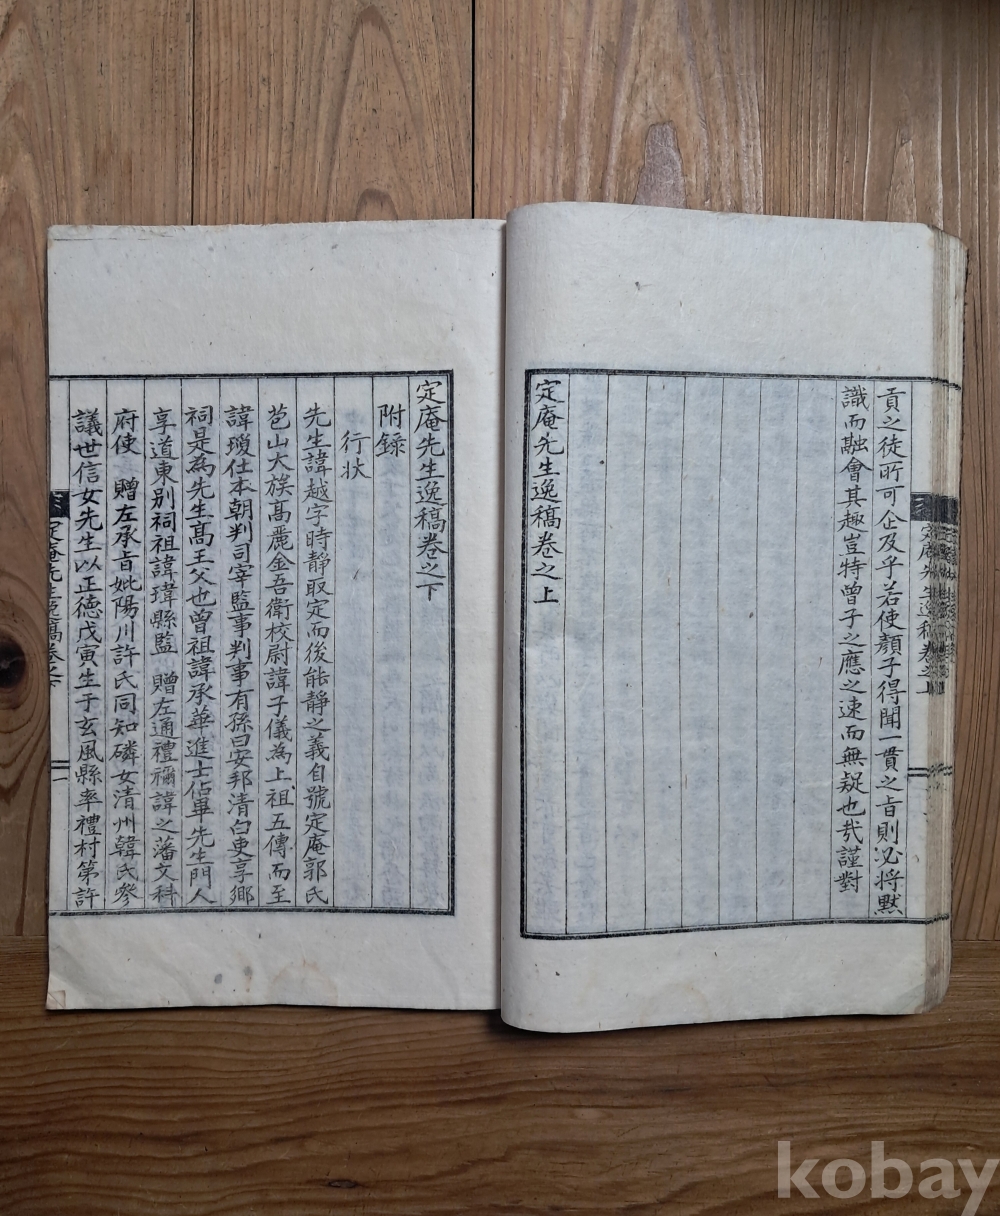 貢之徒所可企及乎若使顏子得聞一貫之旨則必將默
識而融會其趣豈特曾子之應之速而無疑也哉謹對
定庵先生逸稿卷之上
定庵先生逸稿卷之下
附錄
行狀
先生諱越字時靜取定而後能靜之義自號定庵郭氏
苞山大族高麗金吾衛校尉諱子儀為上祖五傳而至
諱瓊仕本朝判司宰監事判事有孫曰安邦清白吏享鄉
祠是為先生高王父也曾祖諱承華進士佔畢先生門人
享道東別祠祖諱瑋縣監 贈左通禮禰諱之藩文科
府使 贈左承旨妣陽川許氏同知磷女清州韓氏參
議世信女先生以正德戊寅生于玄風縣率禮村第許
定庵先生逸稿卷之上
定庵先生逸稿卷之下
一
kobay